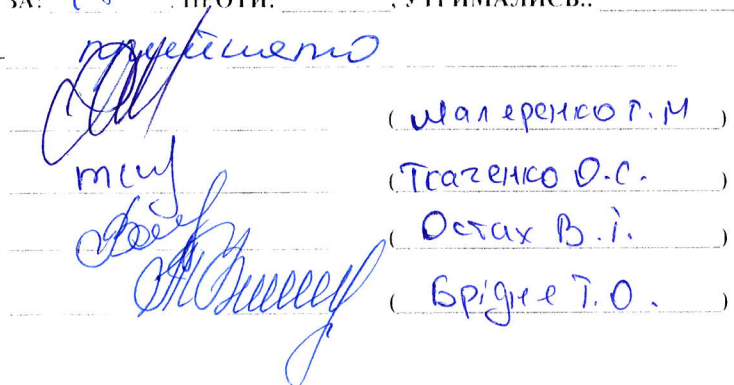 ЗА: ПРОТИ: ; УТРИМАЛИСЬ:
прийнято
( Маляренко Г. М )
( Ткаченко О.С. )
( Остах В. І. )
( Т. О. )